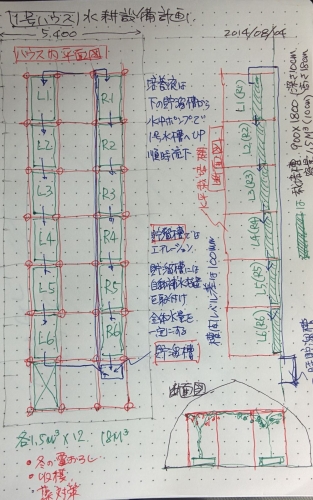 1号ハウス 水耕設備計画
2014/08/04
5,400
ハウス内平面図
L1
L2
L3
L4
L5
L6
R1
R2
R3
R4
R5
R6
培養液は
下の貯溜槽から
水中ポンプで
1号水槽へUP
順時流下
貯溜槽では
エアレーション
貯溜槽には
自動補水装置
を取付け
全体水量を
一定にする
貯溜槽
断面図
L1(R1)
L2(R2)
L3(R3)
L4(R4)
L5(R5)
L6(R6)
槽间レベル差は100mm
栽培槽 900×1800 深さ10cm
容量1.5M³(10cm)高さ18cm
断面図
各1.5M³×12 18M³
・冬の雪おろし
・収穫
・葉対策